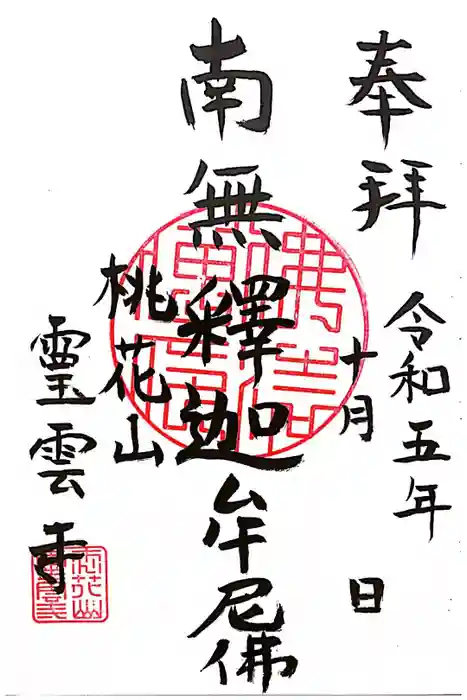 奉拝
令和五年
十月 日
南無釋迦牟尼佛
桃花山
霊雲寺